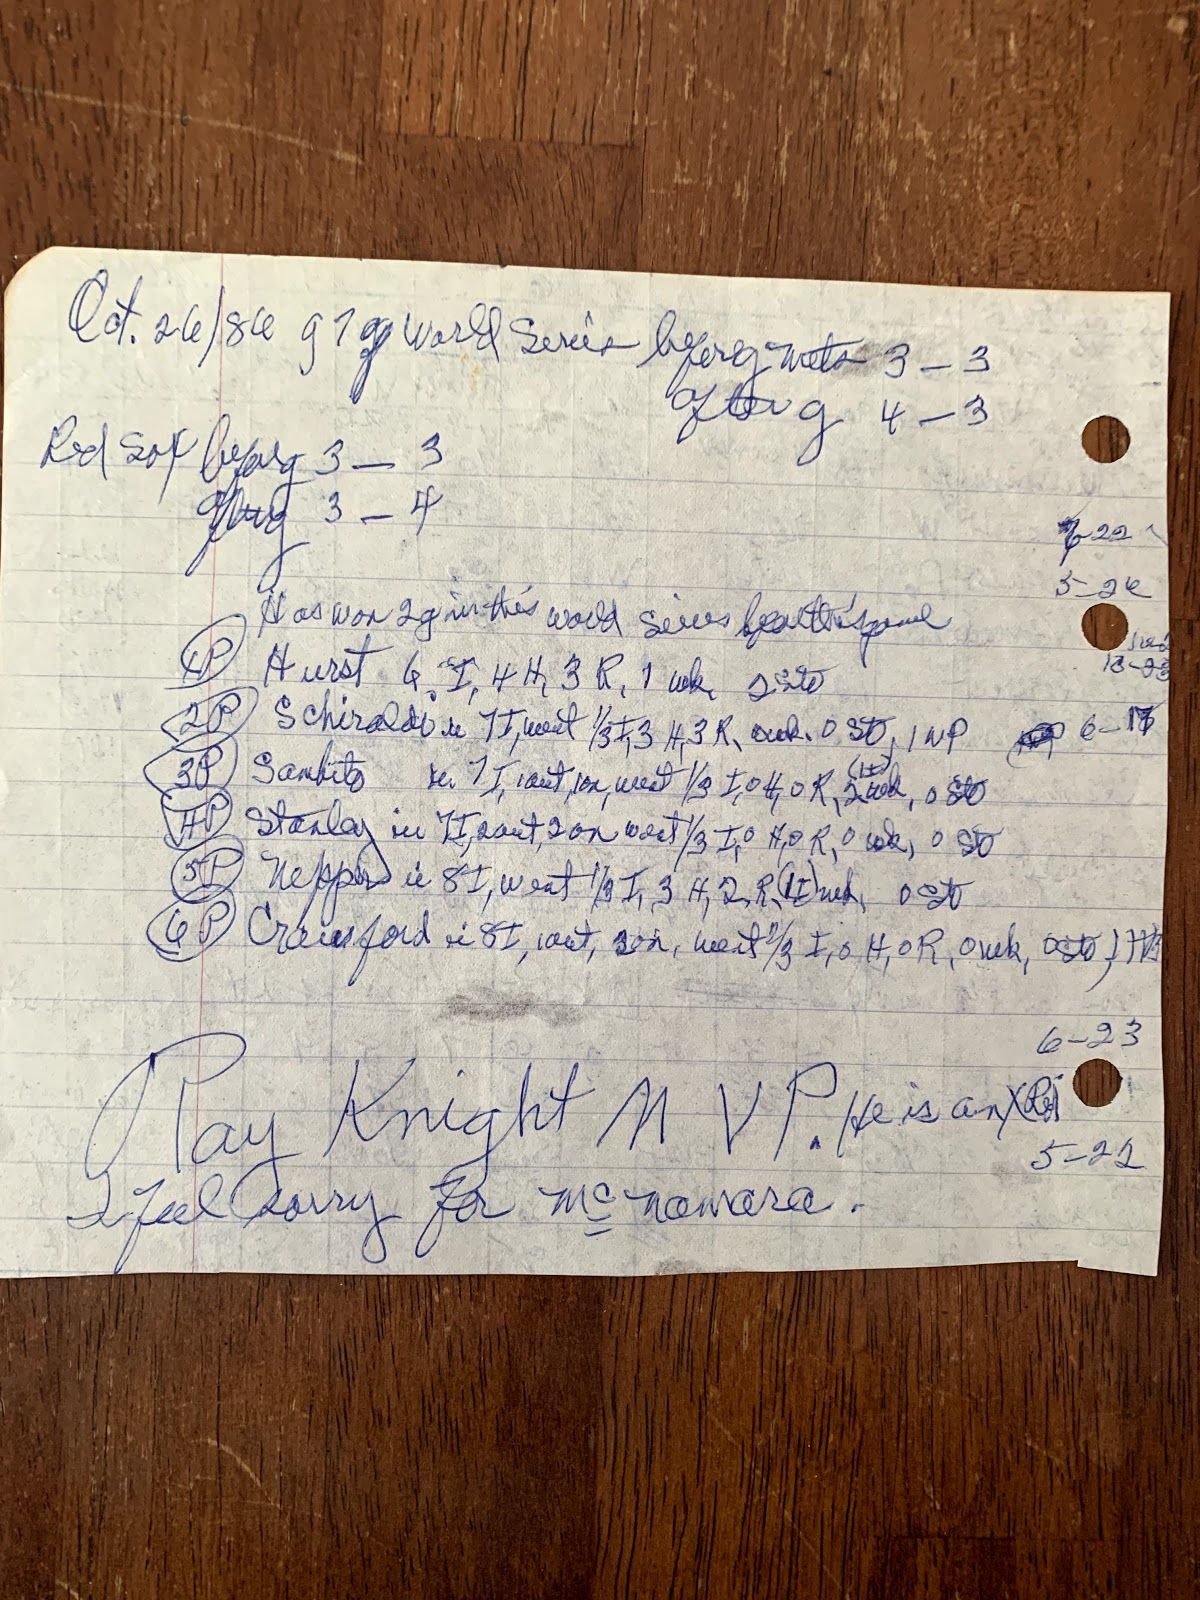 Oct. 26/86 g 7 of World Series before g Mets 3 – 3
after g 4 – 3
Red Sox before g 3 – 3
after g 3 – 4
7-22
5-26
Has won 2 g in this world series before this game
1P Hurst 6 I, 4 H, 3 R, 1 wk, 2 Sto
13-23
2P Schiraldi in 7 I, went 1/3 I, 3 H, 3 R, 0 wk. 0 Sto, 1 WP 6-17
3P Sambito in 7 I, 1 out, 1 on, went 1/3 I, 0 H, 0 R, 2 wk, 0 Sto
4P Stanley in 7 I, 2 out, 2 on went 1/3 I, 0 H, 0 R, 0 wk, 0 Sto
5P Nipper in 8 I, went 1/3 I, 3 H, 2 R, (1I) wk, 0 Sto
6P Crawford in 8 I, 1 out, 3 on, went 2/3 I, 0 H, 0 R, 0 wk, 0 Sto, 1
6-23
Ray Knight M V P. He is an X Red
5-22
I feel sorry for McNamara.